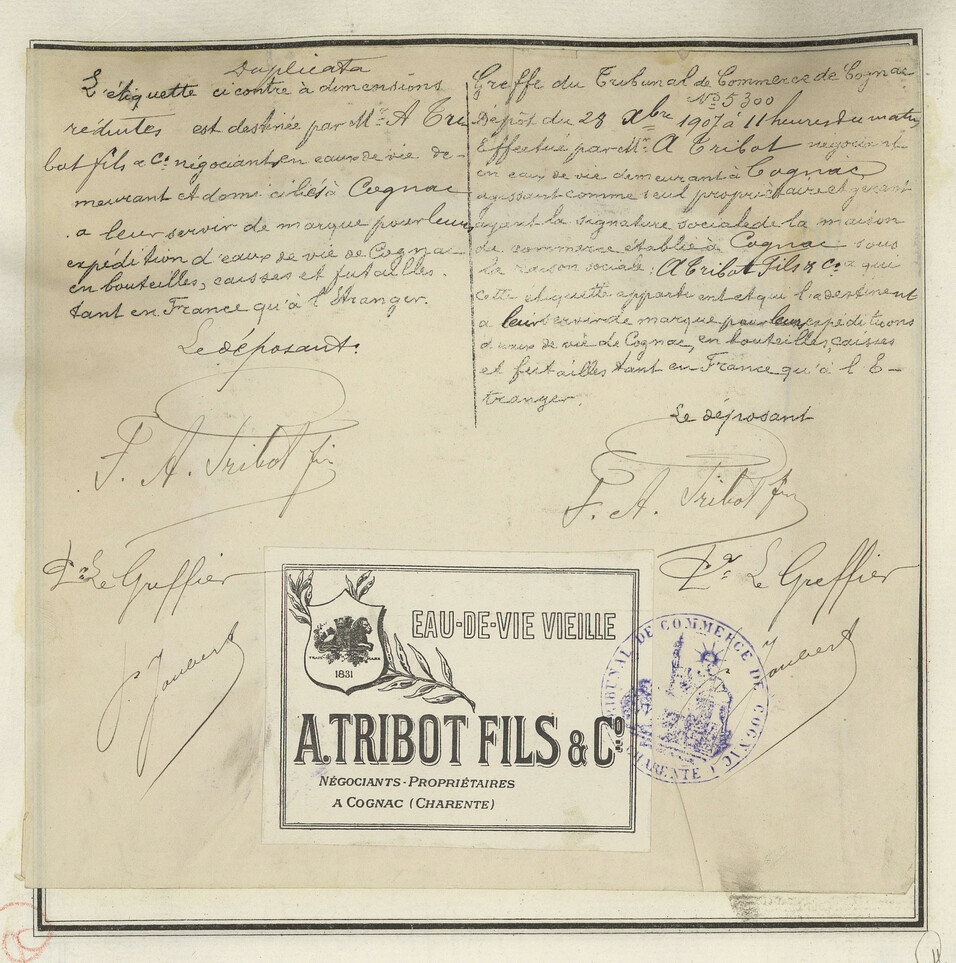 Duplicata
L'étiquette ci contre à dimensions
réduites est destinée par Mr. A Tri
bot fils & Co. négociants en eaux de vie de-
meurant et domiciliés à Cognac
a leur servir de marque pour leurs
expédition d'eaux de vie de Cognac
en bouteilles, caisses et futailles.
tant en France qu'à l'Etranger.
Le déposant.
F. A. Tribot fils
Pr. Le Greffier
P. Joubert
Greffe du Tribunal de Commerce de Cognac
No. 5300
Dépôt du 23 Xbre 1907 à 11 heures du matin,
Effectué par Mr. A Tribot négociant
en eaux de vie demeurant à Cognac
agissant comme seul propriétaire et gérant
ayant la signature sociale de la maison
de commerce établie à Cognac sous
la raison sociale: A Tribot Fils & Co a qui
cette étiquette appartient et qui la destinent
a leur servir de marque pour leurs expéditions
d'eaux de vie de Cognac, en bouteilles, caisses
et futailles tant en France qu'à l'E-
tranger.
Le déposant
F. A. Tribot fils
Pr. Le Greffier
P. Joubert
EAU-DE-VIE VIEILLE
TRADE MARK
1831
A. TRIBOT FILS & Co.
NÉGOCIANTS-PROPRIÉTAIRES
A COGNAC (CHARENTE)
TRIBUNAL DE COMMERCE DE COGNAC
(CHARENTE)